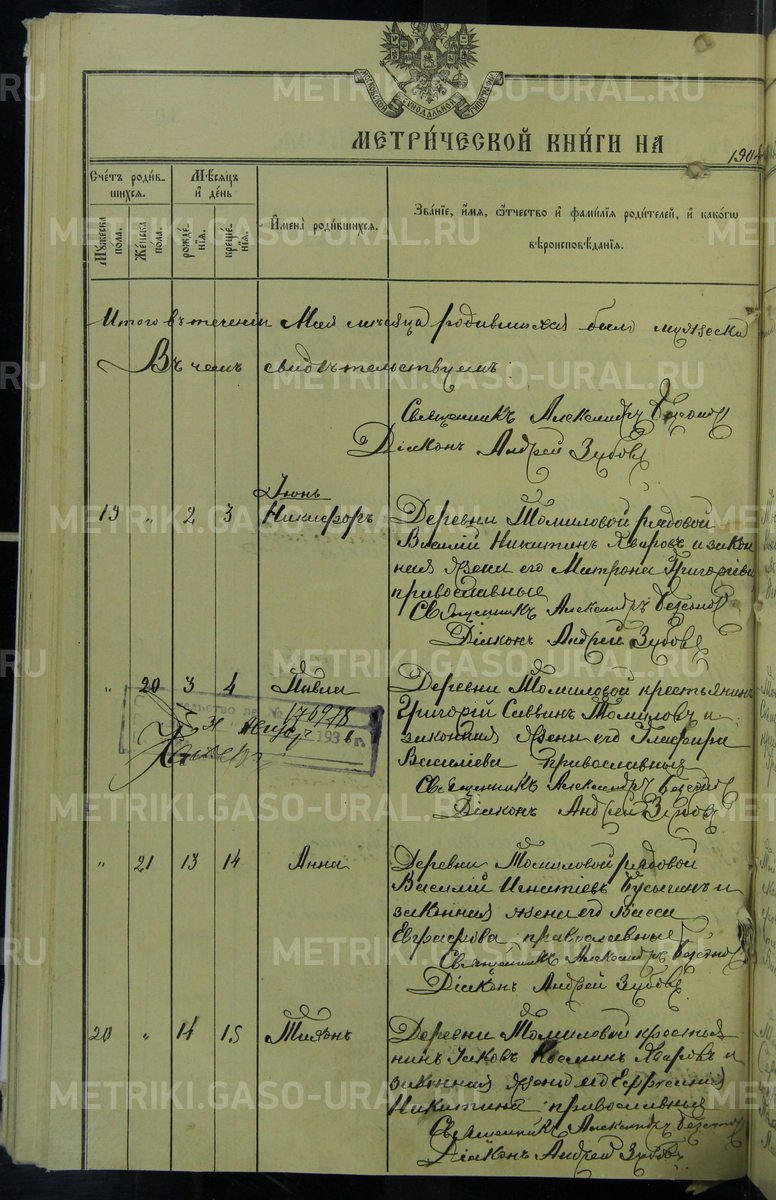 МОСКОВСКОЙ СѴНОДАЛЬНОЙ ТИПОГРАФІИ
МЕТРИ́ЧЕСКОЙ КНИ́ГИ НА 1904
Сче́тъ роди́в-
шихся.
Мѣ́сяцъ
и҆ де́нь
Мꙋ́жеска
пола.
Же́нска
пола.
рожде́-
нїѧ.
креще́-
нїѧ.
И҆мена̀ роди́вшихсѧ.
Зва́нїе, и҆́мѧ, ѻ҆́тчество и҆ фами́лїѧ роди́телей, и҆ како́гѡ
вѣроисповѣ́данїѧ.
Итого въ теченіи Мая мѣсяца родившихся было мужеска
Въ чемъ свидѣтельствуемъ:
Священникъ Александръ
Діаконъ Андрей Зубовъ
Іюнь
19 " 2 3 Никифоръ Деревни Томиловой рядовой
Василій Никитинъ Уваровъ и закон
ная жена его Матрона Григоріева
православные
Священникъ Александръ
Діаконъ Андрей Зубовъ
" 20 3 4 Павла Деревни Томиловой крестьянинъ
Григорій Саввинъ Томиловъ и
законная жена его Глафира
Василіева православные
Священникъ Александръ
Діаконъ Андрей Зубовъ
176978
193 г.
" 21 13 14 Анна Деревни Томиловой рядовой
Василій Игнатіевъ Бусыгинъ и
законная жена его Васса
Евграфова православные
Священникъ Александръ
Діаконъ Андрей Зубовъ
20 " 14 15 Тихонъ Деревни Томиловой крестья
нинъ Іаковъ Косминъ Уваровъ и
законная жена его Евфросинія
Никитина православные
Священникъ Александръ
Діаконъ Андрей Зубовъ
METRIKI.GASO-URAL.RU